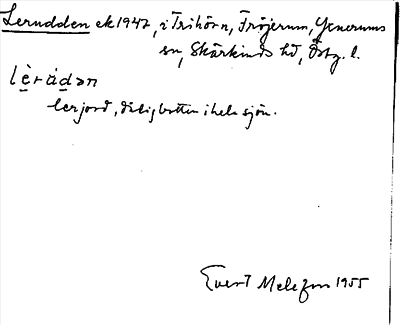 Lerudden ek 1947, i Trihörn, Fröjerum, Yxnerums
sn, Skärkinds hd, Östg. l.
lèrúdən
lerjord, dålig botten i hela sjön.
Evert Melefors 1955